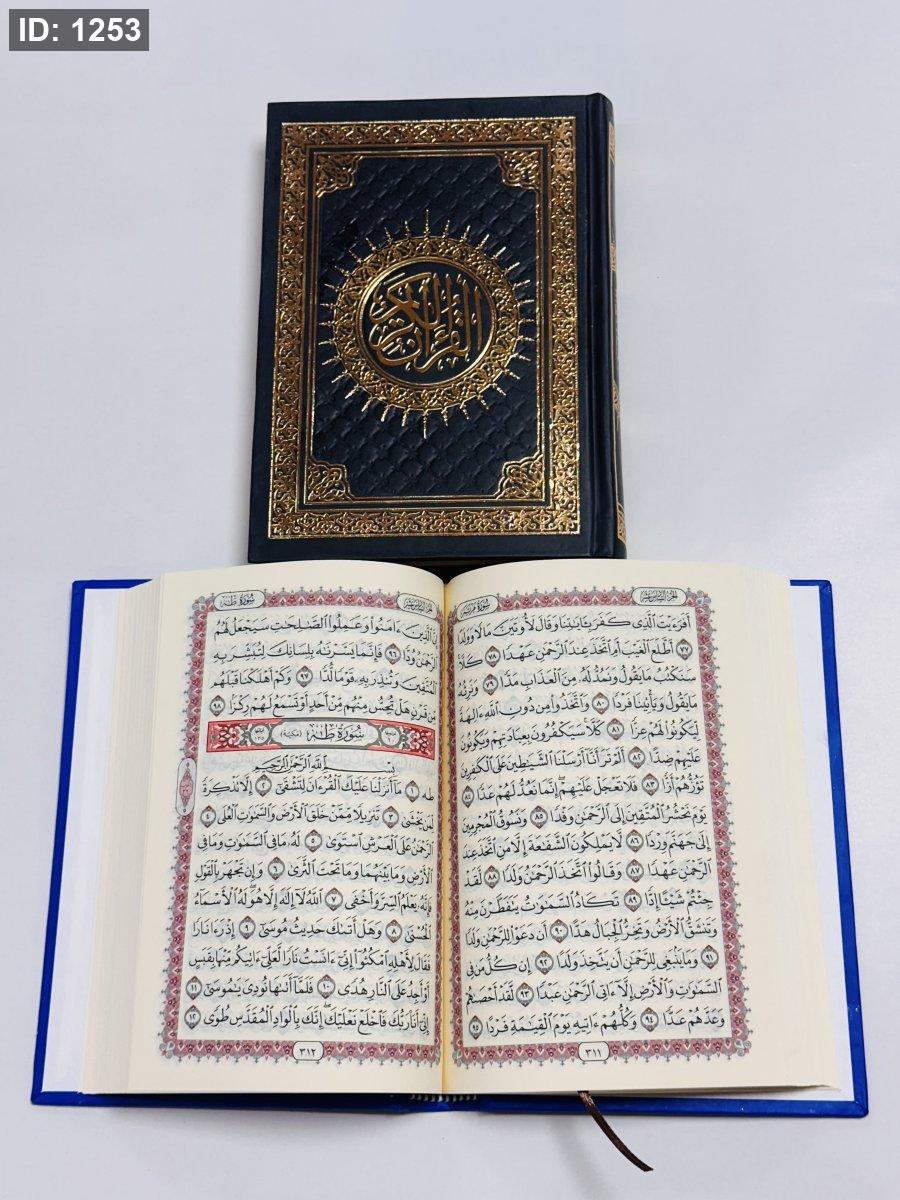 ID: 1253
القرآن الكريم
الجزء السادس عشر
سورة مريم
أَفَرَءَيْتَ ٱلَّذِى كَفَرَ بِـَٔايَٰتِنَا وَقَالَ لَأُوتَيَنَّ مَالًا وَوَلَدًا
٧٧ أَطَّلَعَ ٱلْغَيْبَ أَمِ ٱتَّخَذَ عِندَ ٱلرَّحْمَٰنِ عَهْدًا ٧٨ كَلَّا
سَنَكْتُبُ مَا يَقُولُ وَنَمُدُّ لَهُۥ مِنَ ٱلْعَذَابِ مَدًّا ٧٩ وَنَرِثُهُۥ
مَا يَقُولُ وَيَأْتِينَا فَرْدًا ٨٠ وَٱتَّخَذُوا۟ مِن دُونِ ٱللَّهِ ءَالِهَةً
لِّيَكُونُوا۟ لَهُمْ عِزًّا ٨١ كَلَّا سَيَكْفُرُونَ بِعِبَادَتِهِمْ وَيَكُونُونَ
عَلَيْهِمْ ضِدًّا ٨٢ أَلَمْ تَرَ أَنَّآ أَرْسَلْنَا ٱلشَّيَٰطِينَ عَلَى ٱلْكَٰفِرِينَ
تَؤُزُّهُمْ أَزًّا ٨٣ فَلَا تَعْجَلْ عَلَيْهِمْ إِنَّمَا نَعُدُّ لَهُمْ عَدًّا ٨٤
يَوْمَ نَحْشُرُ ٱلْمُتَّقِينَ إِلَى ٱلرَّحْمَٰنِ وَفْدًا ٨٥ وَنَسُوقُ ٱلْمُجْرِمِينَ
إِلَىٰ جَهَنَّمَ وِرْدًا ٨٦ لَّا يَمْلِكُونَ ٱلشَّفَٰعَةَ إِلَّا مَنِ ٱتَّخَذَ عِندَ
ٱلرَّحْمَٰنِ عَهْدًا ٨٧ وَقَالُوا۟ ٱتَّخَذَ ٱلرَّحْمَٰنُ وَلَدًا ٨٨ لَّقَدْ
جِئْتُمْ شَيْـًٔا إِدًّا ٨٩ تَكَادُ ٱلسَّمَٰوَٰتُ يَتَفَطَّرْنَ مِنْهُ
وَتَنشَقُّ ٱلْأَرْضُ وَتَخِرُّ ٱلْجِبَالُ هَدًّا ٩٠ أَن دَعَوْا۟ لِلرَّحْمَٰنِ وَلَدًا
٩١ وَمَا يَنۢبَغِى لِلرَّحْمَٰنِ أَن يَتَّخِذَ وَلَدًا ٩٢ إِن كُلُّ مَن فِى
ٱلسَّمَٰوَٰتِ وَٱلْأَرْضِ إِلَّآ ءَاتِى ٱلرَّحْمَٰنِ عَبْدًا ٩٣ لَّقَدْ أَحْصَىٰهُمْ
وَعَدَّهُمْ عَدًّا ٩٤ وَكُلُّهُمْ ءَاتِيهِ يَوْمَ ٱلْقِيَٰمَةِ فَرْدًا ٩٥
٣١١
الجزء السادس عشر
سورة طه
إِنَّ ٱلَّذِينَ ءَامَنُوا۟ وَعَمِلُوا۟ ٱلصَّٰلِحَٰتِ سَيَجْعَلُ لَهُمُ
ٱلرَّحْمَٰنُ وُدًّا ٩٦ فَإِنَّمَا يَسَّرْنَٰهُ بِلِسَانِكَ لِتُبَشِّرَ بِهِ
ٱلْمُتَّقِينَ وَتُنذِرَ بِهِۦ قَوْمًا لُّدًّا ٩٧ وَكَمْ أَهْلَكْنَا قَبْلَهُم
مِّن قَرْنٍ هَلْ تُحِسُّ مِنْهُم مِّنْ أَحَدٍ أَوْ تَسْمَعُ لَهُمْ رِكْزًۢا ٩٨
سورة طه مكية
بِسْمِ ٱللَّهِ ٱلرَّحْمَٰنِ ٱلرَّحِيمِ
طه ١ مَآ أَنزَلْنَا عَلَيْكَ ٱلْقُرْءَانَ لِتَشْقَىٰٓ ٢ إِلَّا تَذْكِرَةً
لِّمَن يَخْشَىٰ ٣ تَنزِيلًا مِّمَّنْ خَلَقَ ٱلْأَرْضَ وَٱلسَّمَٰوَٰتِ ٱلْعُلَى ٤
ٱلرَّحْمَٰنُ عَلَى ٱلْعَرْشِ ٱسْتَوَىٰ ٥ لَهُۥ مَا فِى ٱلسَّمَٰوَٰتِ وَمَا فِى
ٱلْأَرْضِ وَمَا بَيْنَهُمَا وَمَا تَحْتَ ٱلثَّرَىٰ ٦ وَإِن تَجْهَرْ بِٱلْقَوْلِ
فَإِنَّهُۥ يَعْلَمُ ٱلسِّرَّ وَأَخْفَى ٧ ٱللَّهُ لَآ إِلَٰهَ إِلَّا هُوَ لَهُ ٱلْأَسْمَآءُ
ٱلْحُسْنَىٰ ٨ وَهَلْ أَتَىٰكَ حَدِيثُ مُوسَىٰٓ ٩ إِذْ رَءَا نَارًا
فَقَالَ لِأَهْلِهِ ٱمْكُثُوٓا۟ إِنِّىٓ ءَانَسْتُ نَارًا لَّعَلِّىٓ ءَاتِيكُم مِّنْهَا بِقَبَسٍ
أَوْ أَجِدُ عَلَى ٱلنَّارِ هُدًى ١٠ فَلَمَّآ أَتَىٰهَا نُودِىَ يَٰمُوسَىٰٓ ١١
إِنِّىٓ أَنَا۠ رَبُّكَ فَٱخْلَعْ نَعْلَيْكَ إِنَّكَ بِٱلْوَادِ ٱلْمُقَدَّسِ طُوًى ١٢
٣١٢